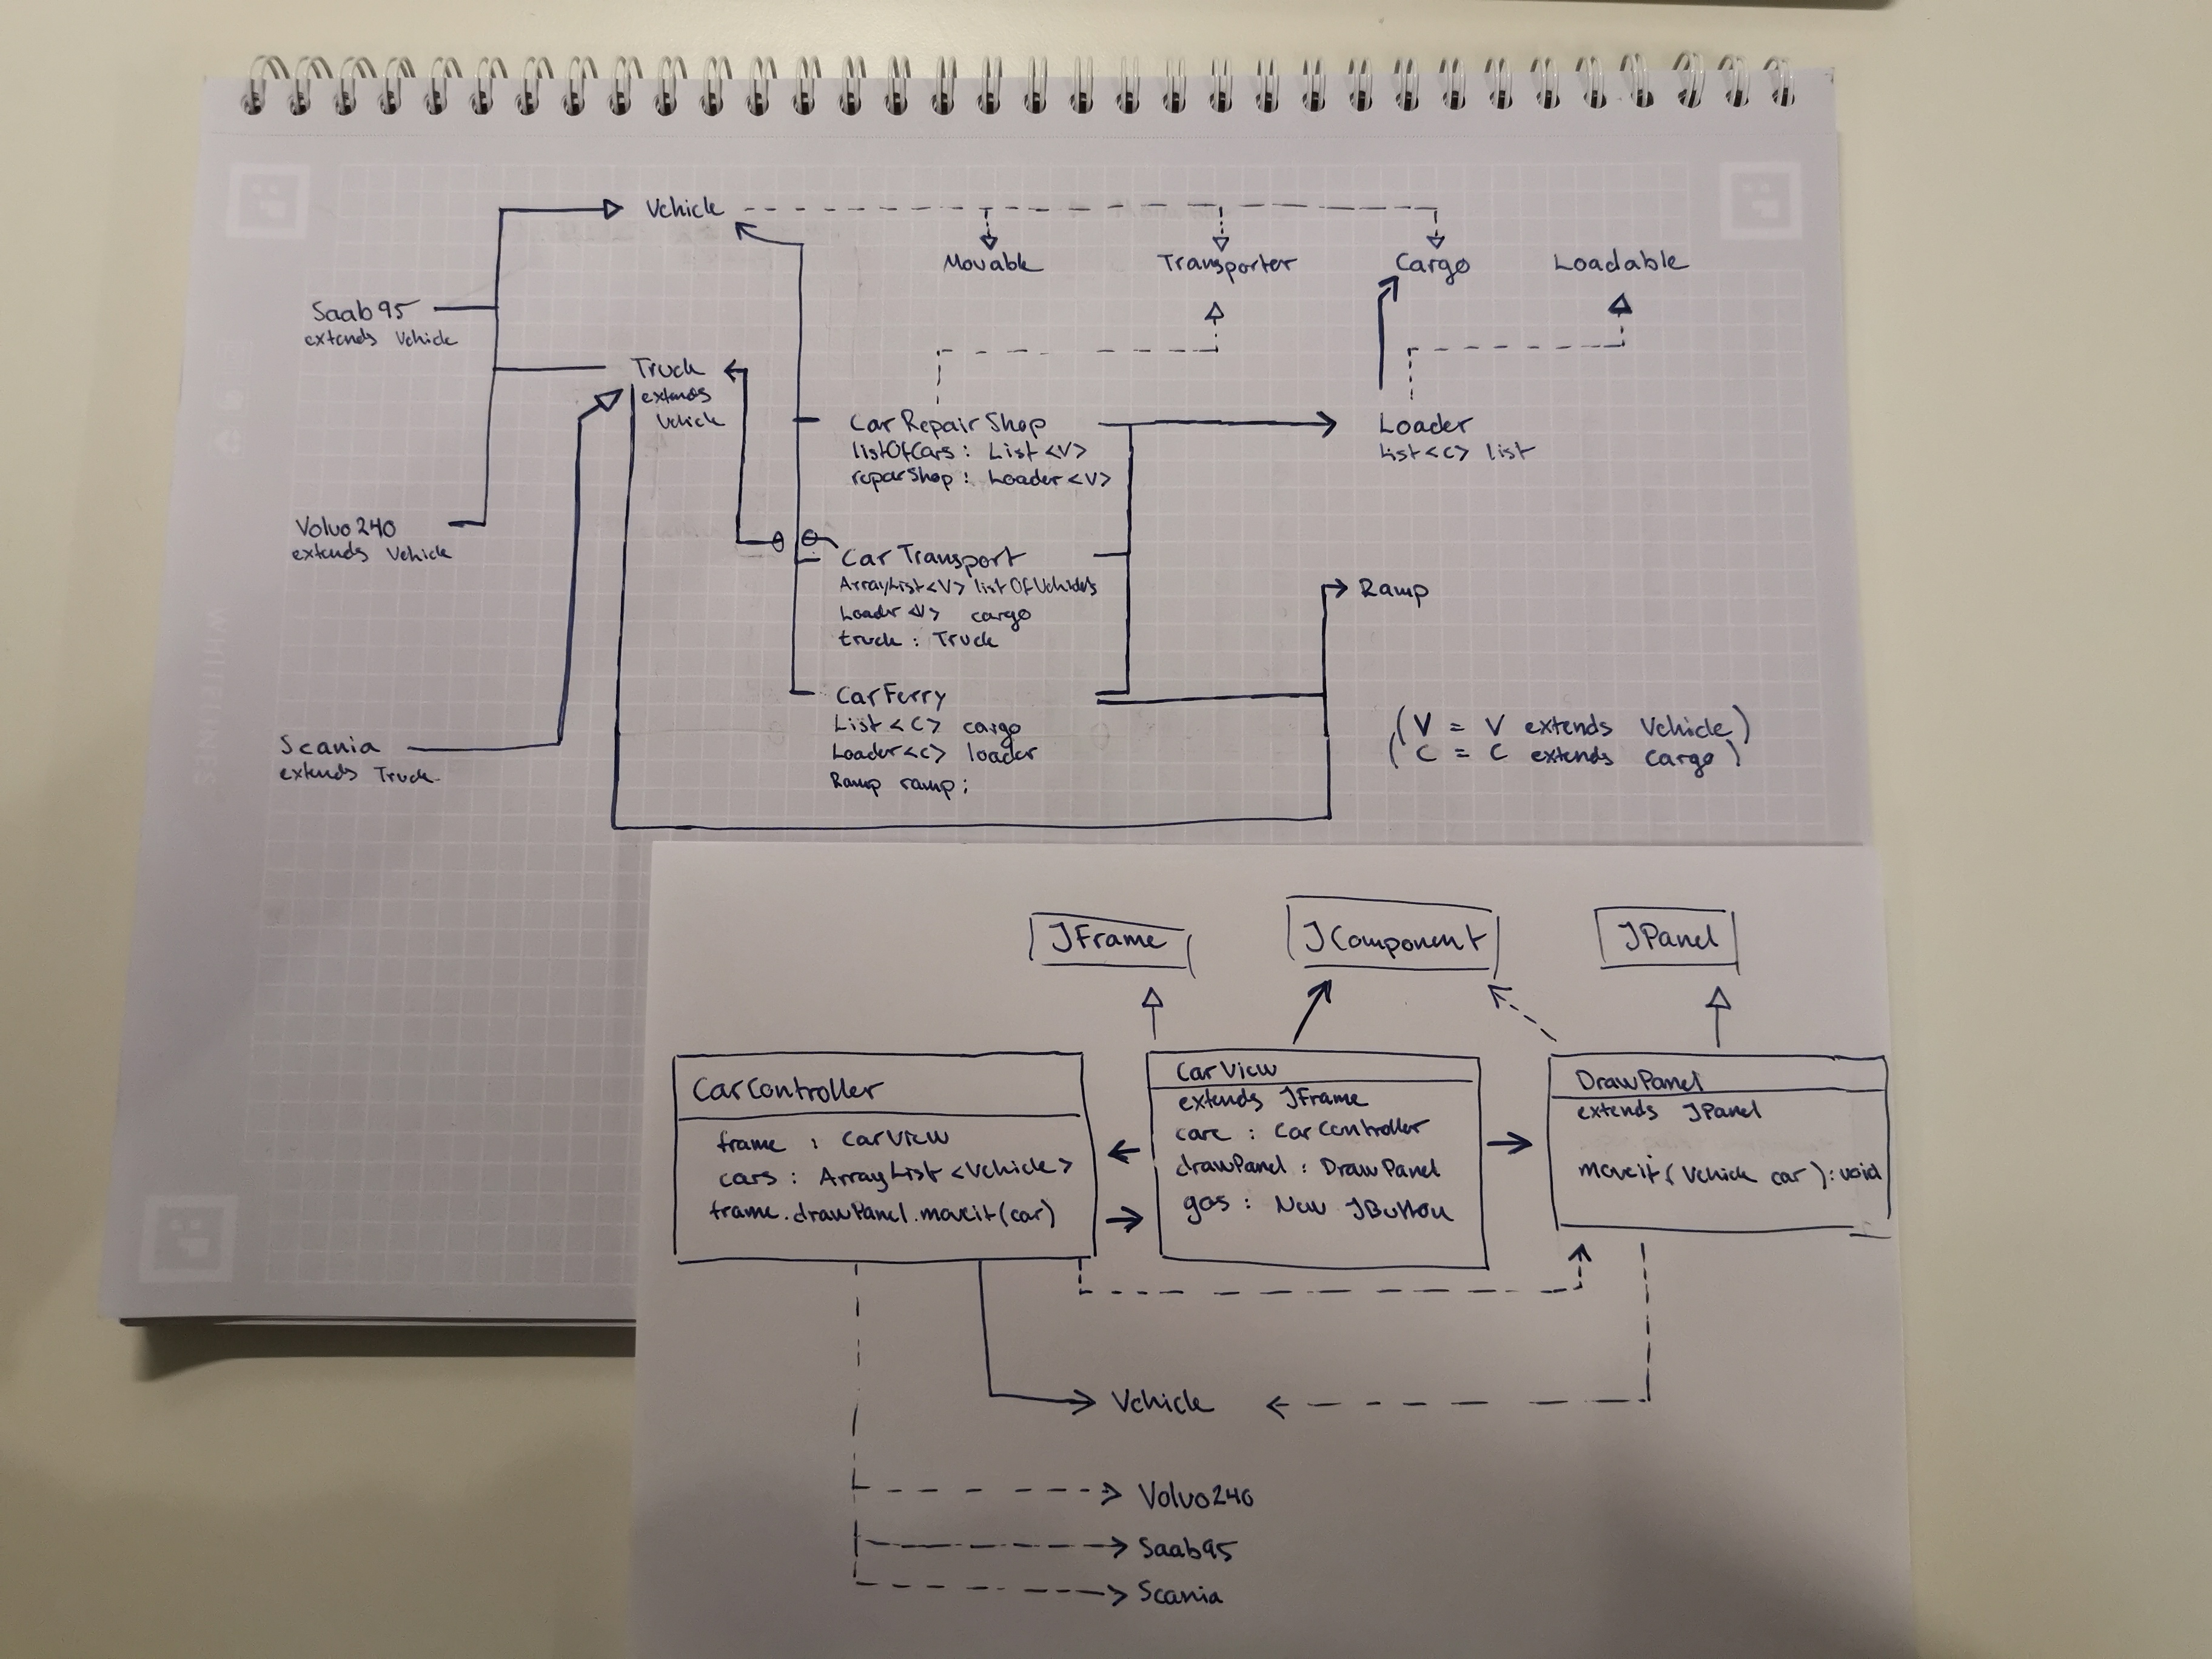 Vehicle
Movable
Transporter
Cargo
Loadable
Saab95
extends Vehicle
Truck
extends
Vehicle
CarRepairShop
listOfCars : List <V>
reparShop : Loader <V>
Loader
List <C> list
Volvo240
extends Vehicle
CarTransport
ArrayList <V> listOfVehicles
Loader <V> cargo
truck : Truck
Ramp
CarFerry
List <C> cargo
Loader <C> loader
Ramp ramp;
(V = V extends Vehicle)
(C = C extends Cargo)
Scania
extends Truck
WHITELINES
JFrame
JComponent
JPanel
CarController
frame : CarView
cars : ArrayList <Vehicle>
frame.drawPanel.moveit(car)
CarView
extends JFrame
carC : CarController
drawPanel : DrawPanel
gas : New JButton
DrawPanel
extends JPanel
moveit(Vehicle car) : void
Vehicle
Volvo240
Saab95
Scania